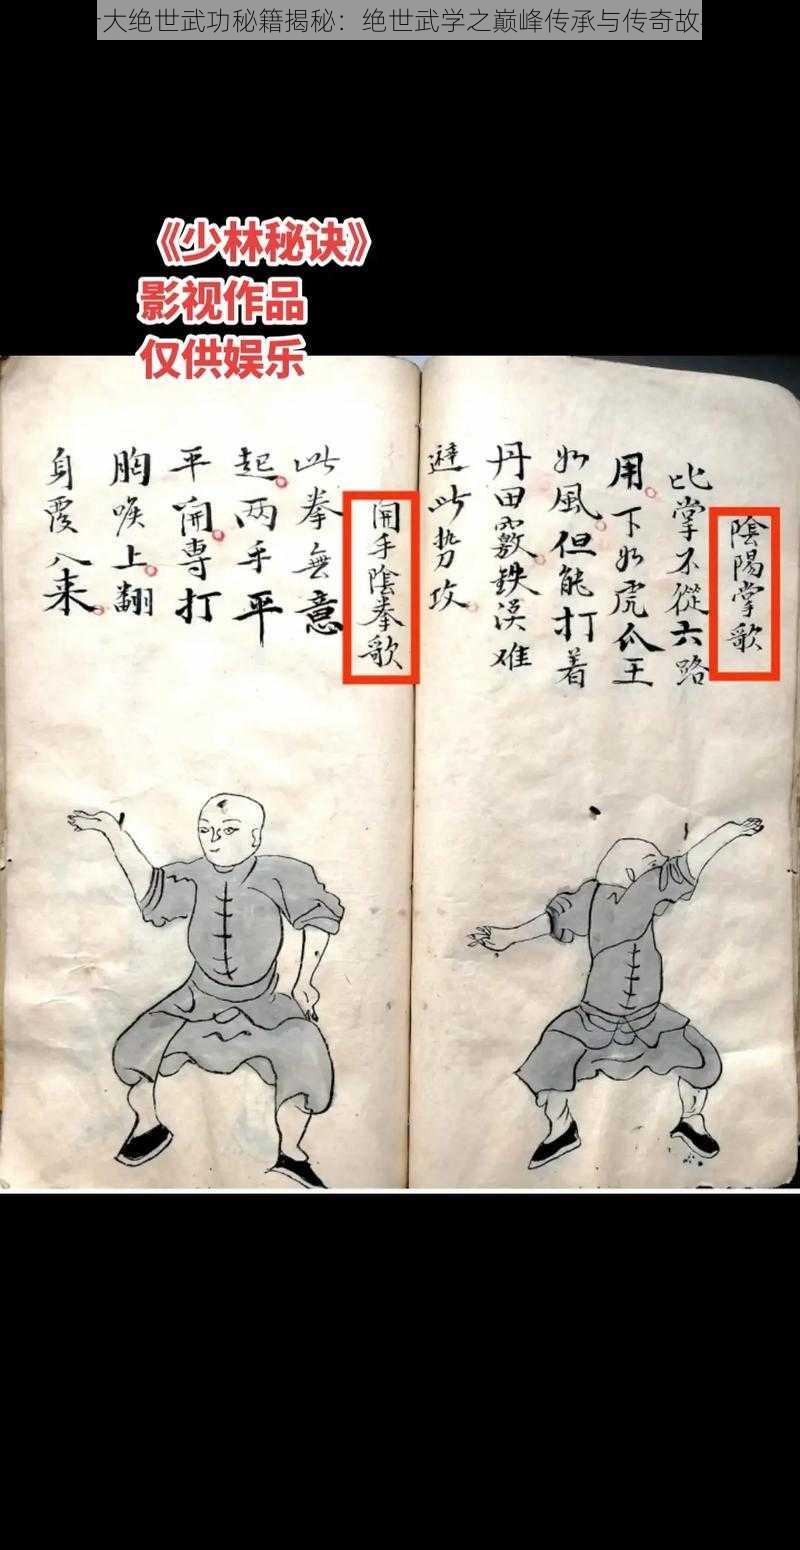 大绝世武功秘籍揭秘：绝世武学之巅峰传承与传奇故
《少林秘诀》
影视作品
仅供娱乐
陰陽掌歌
比掌不從六路
用下如虎爪王
如風但能打着
丹田竅鉄漢难
避此势攻
開手陰拳歌
此拳無意
起两手平
平開專打
胸喉上翻
身覆入来